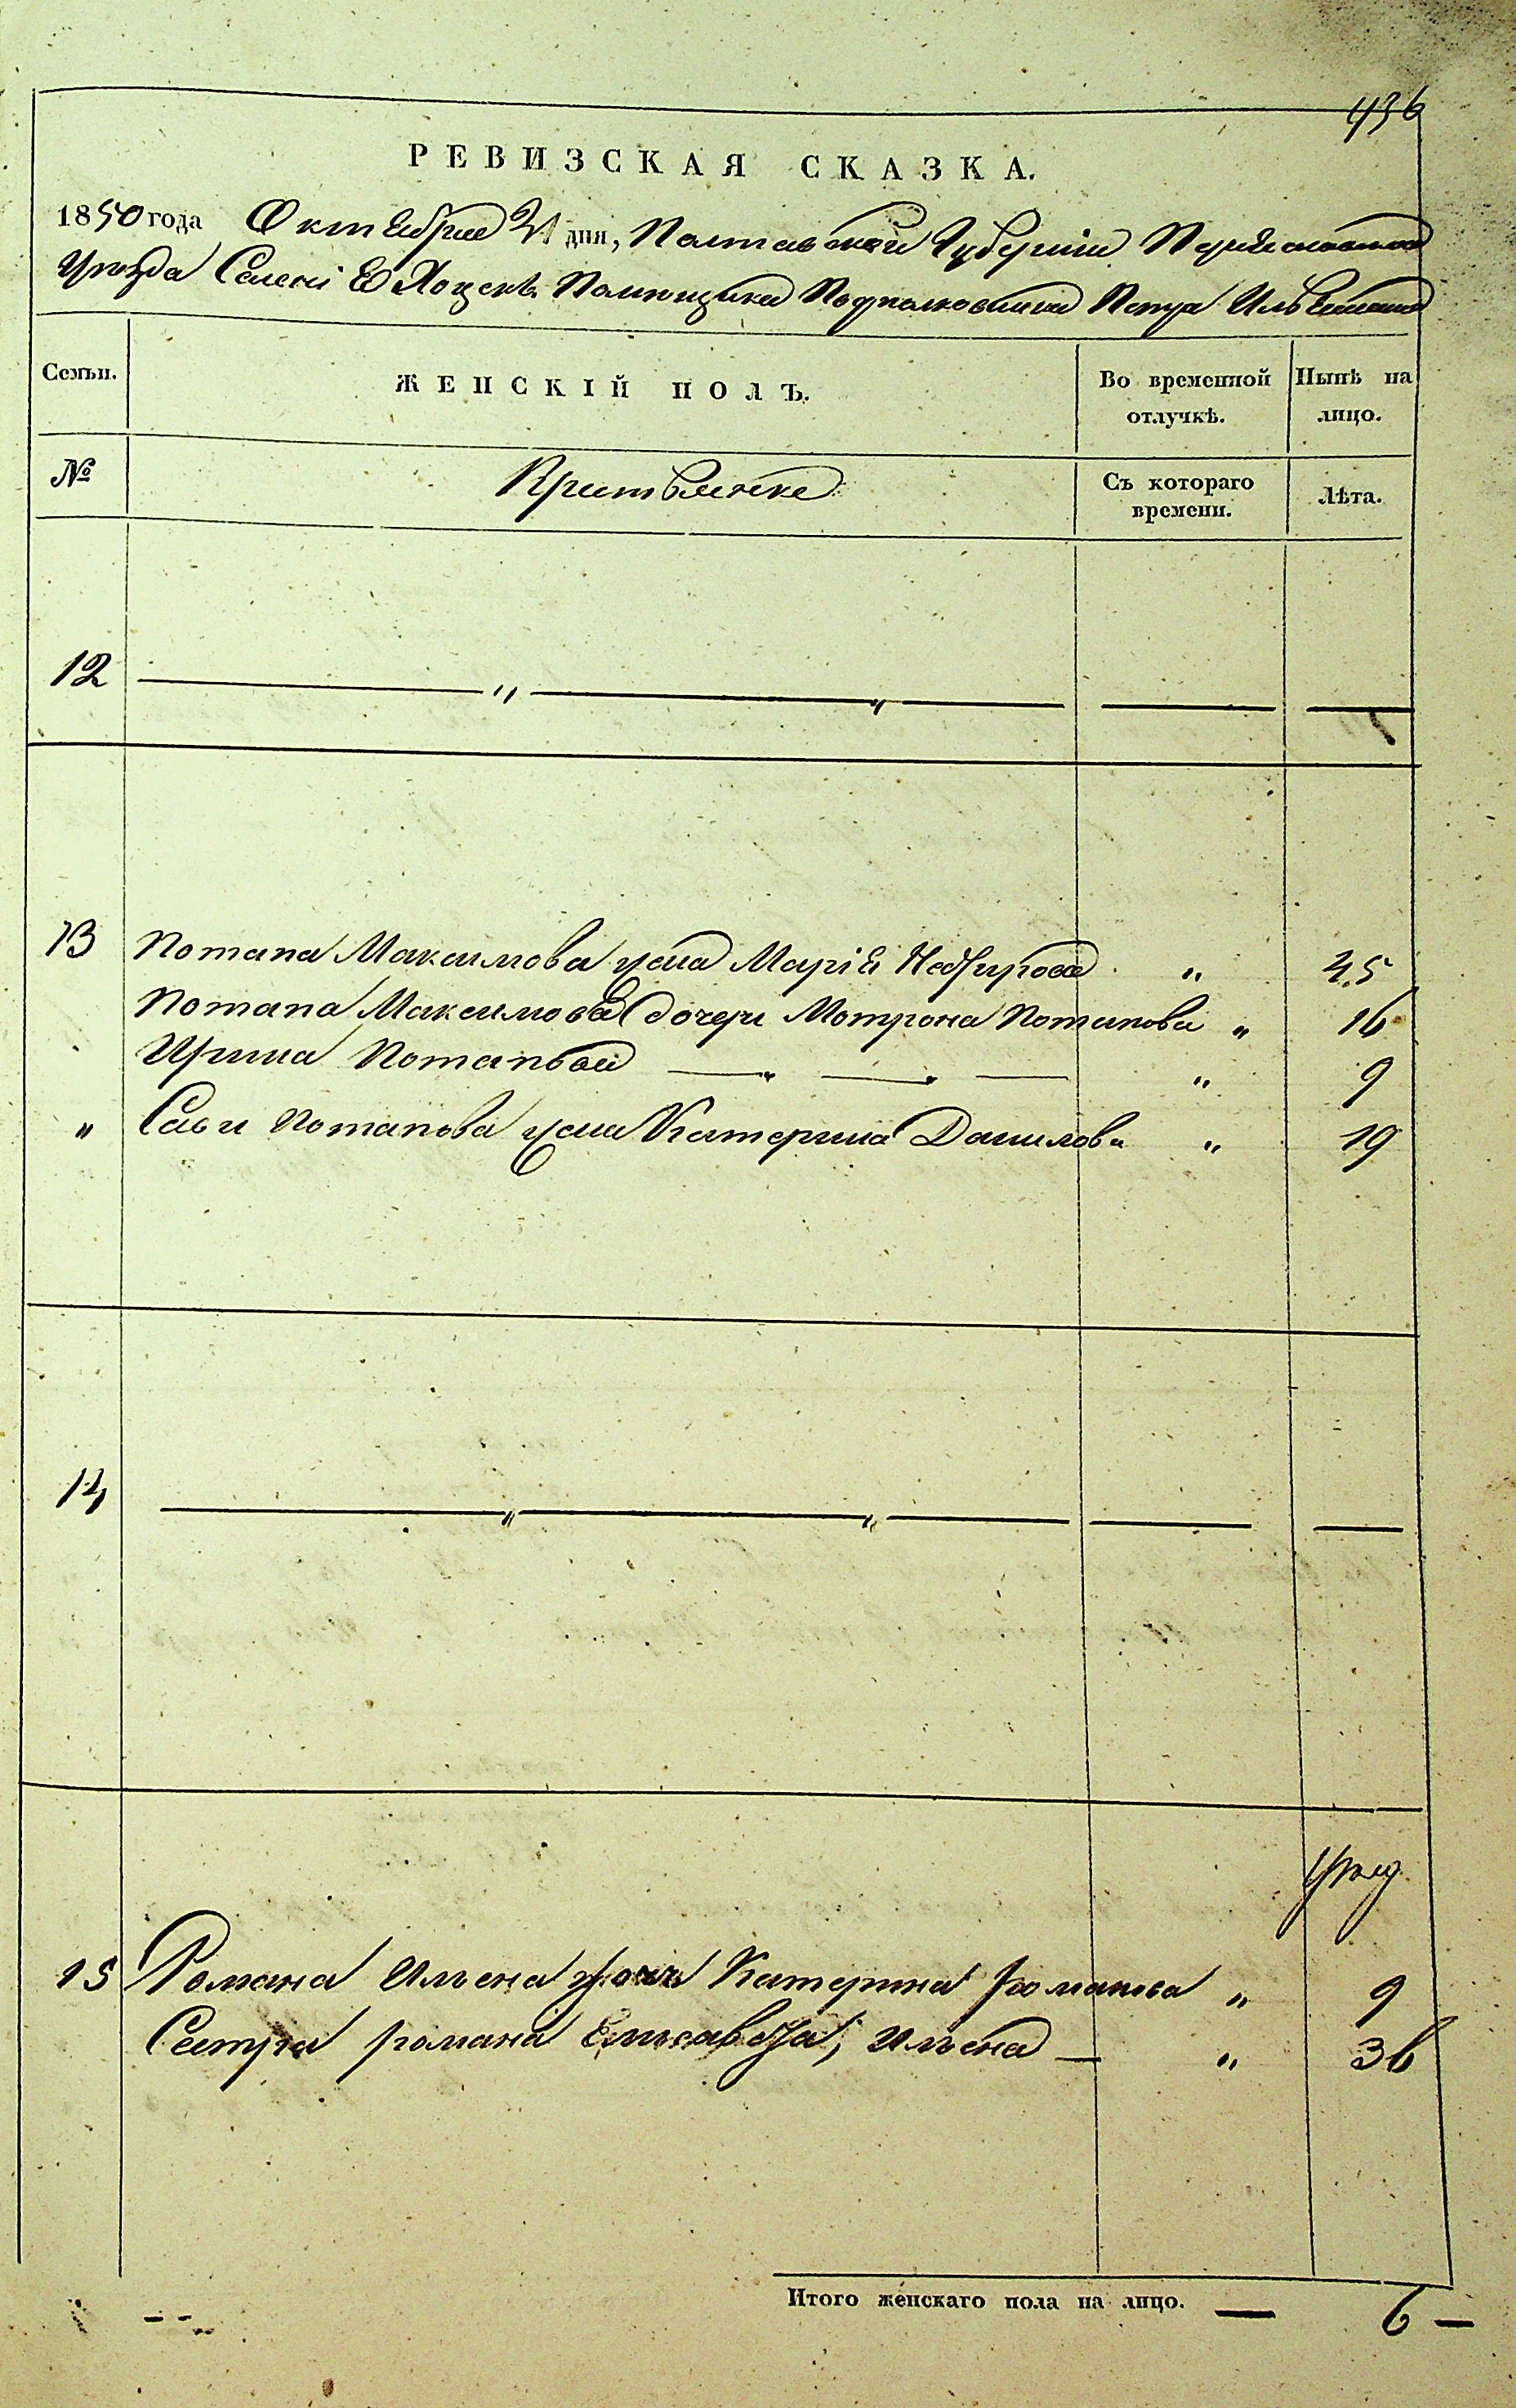 436
РЕВИЗСКАЯ СКАЗКА.
1850 года Октября 21 дня, Полтавской Губерніи Переяславского
Уезда Селенія Хоцекъ Помещика Подполковника Петра Ильяшенка
Семьи. ЖЕНСКІЙ ПОЛЪ. Во временной отлучкѣ. Нынѣ на лицо.
№ Крестьянке Съ котораго времени. Лѣта.
12 — „ — „ — — —
13 Потапа Максимова жена Марія „ 45
Потапа Максимова дочери Мотрона Потапова „ 16
Ирина Потапова — „ 9
„ Савы Потапова жена Катерина Данилова „ 19
14 — „ — „ — — —
15 Романа Ильена дочь Катерина романова „ 9
Сестра романа Елисавета, Ильена — „ 36
Итого женскаго пола на лицо. — 6 —